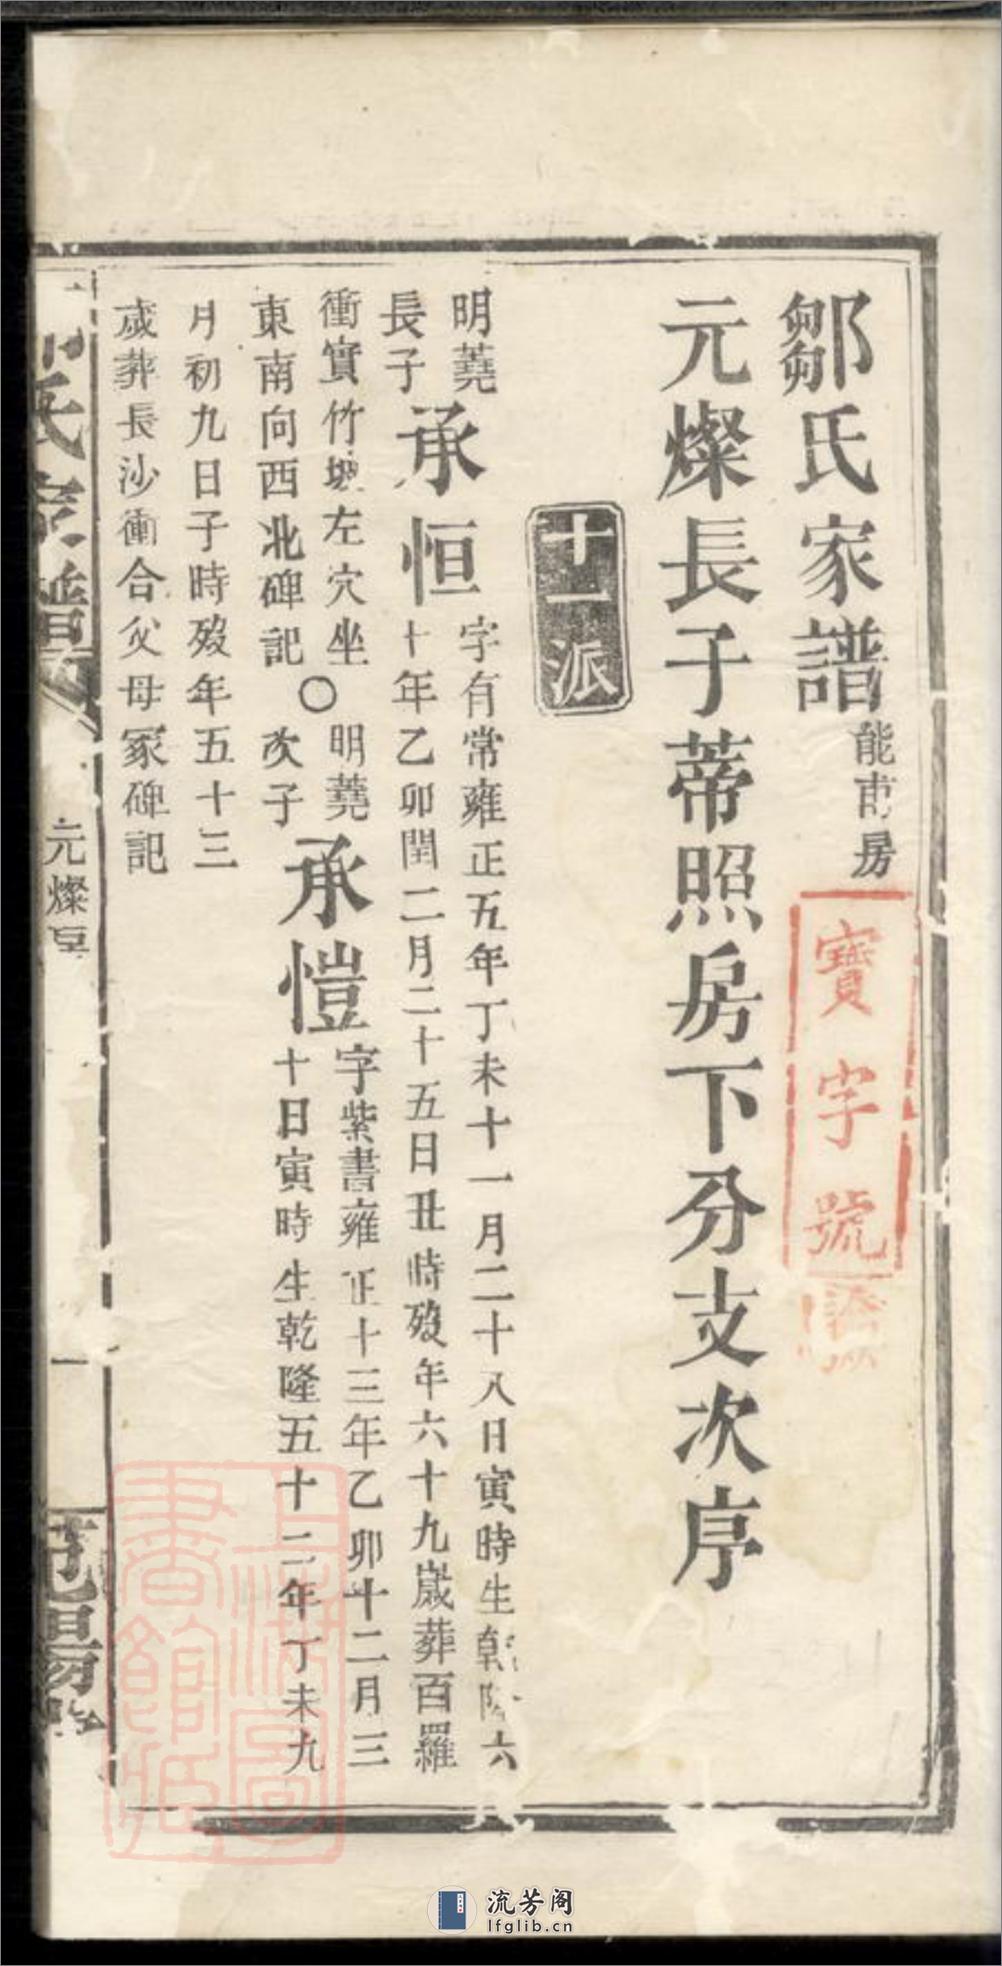 鄒氏家譜 能甫房
寶字號
元燦長子蒂照房下分支次序
十一派
明蕘長子 承恒 字有常雍正五年丁未十一月二十八日寅時生乾隆六
十年乙卯閏二月二十五日丑時歿年六十九歲葬百羅
衝實竹塅左穴坐東南向西北碑記
○明蕘次子 承愷 字紫書雍正十三年乙卯十二月三
十日寅時生乾隆五十二年丁未九
月初九日子時歿年五十三
歲葬長沙衝合父母冢碑記
氏家譜
元燦
一
上海圖書館藏
流芳阁
lfglib.cn